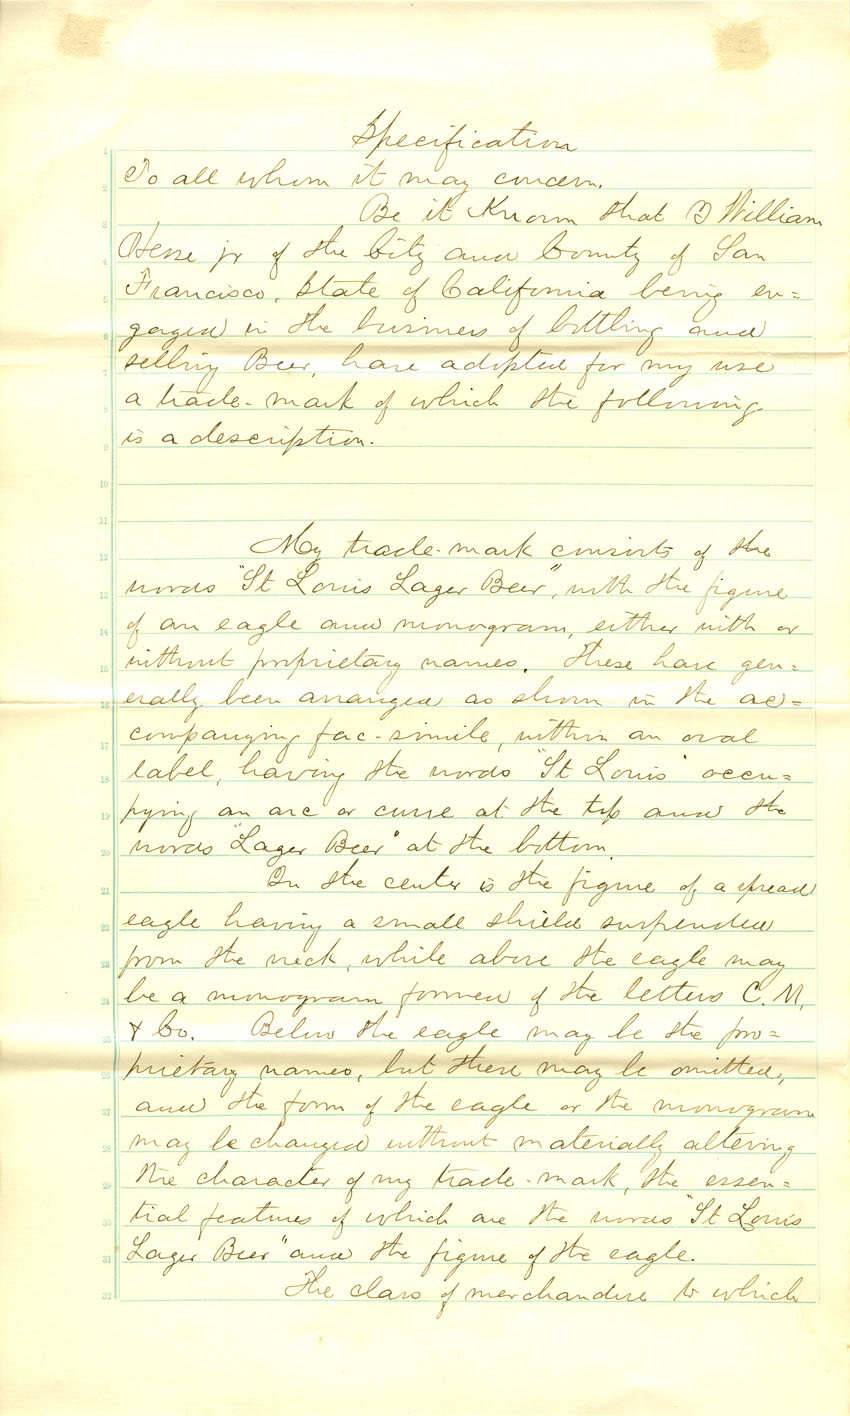 Specification
To all whom it may concern.
Be it Known that I William
Hesse jr of the City and County of San
Francisco, State of California being en=
gaged in the business of bottling and
selling Beer, have adopted for my use
a trade-mark of which the following
is a description.
My trade-mark consists of the
words "St Louis Lager Beer", with the figure
of an eagle and monogram, either with or
without proprietary names. These have gen=
erally been arranged as shown in the ac=
companying fac-simile, within an oval
label, having the words "St Louis" occu=
pying an arc or curve at the top and the
words "Lager Beer" at the bottom.
In the center is the figure of a spread
eagle having a small shield suspended
from the neck, while above the eagle may
be a monogram formed of the letters C. M,
& Co. Below the eagle may be the pro=
prietary names, but these may be omitted,
and the form of the eagle or the monogram
may be changed without materially altering
the character of my trade-mark, the essen=
tial features of which are the words "St Louis
Lager Beer" and the figure of the eagle.
The class of merchandise to which
1
2
3
4
5
6
7
8
9
10
11
12
13
14
15
16
17
18
19
20
21
22
23
24
25
26
27
28
29
30
31
32